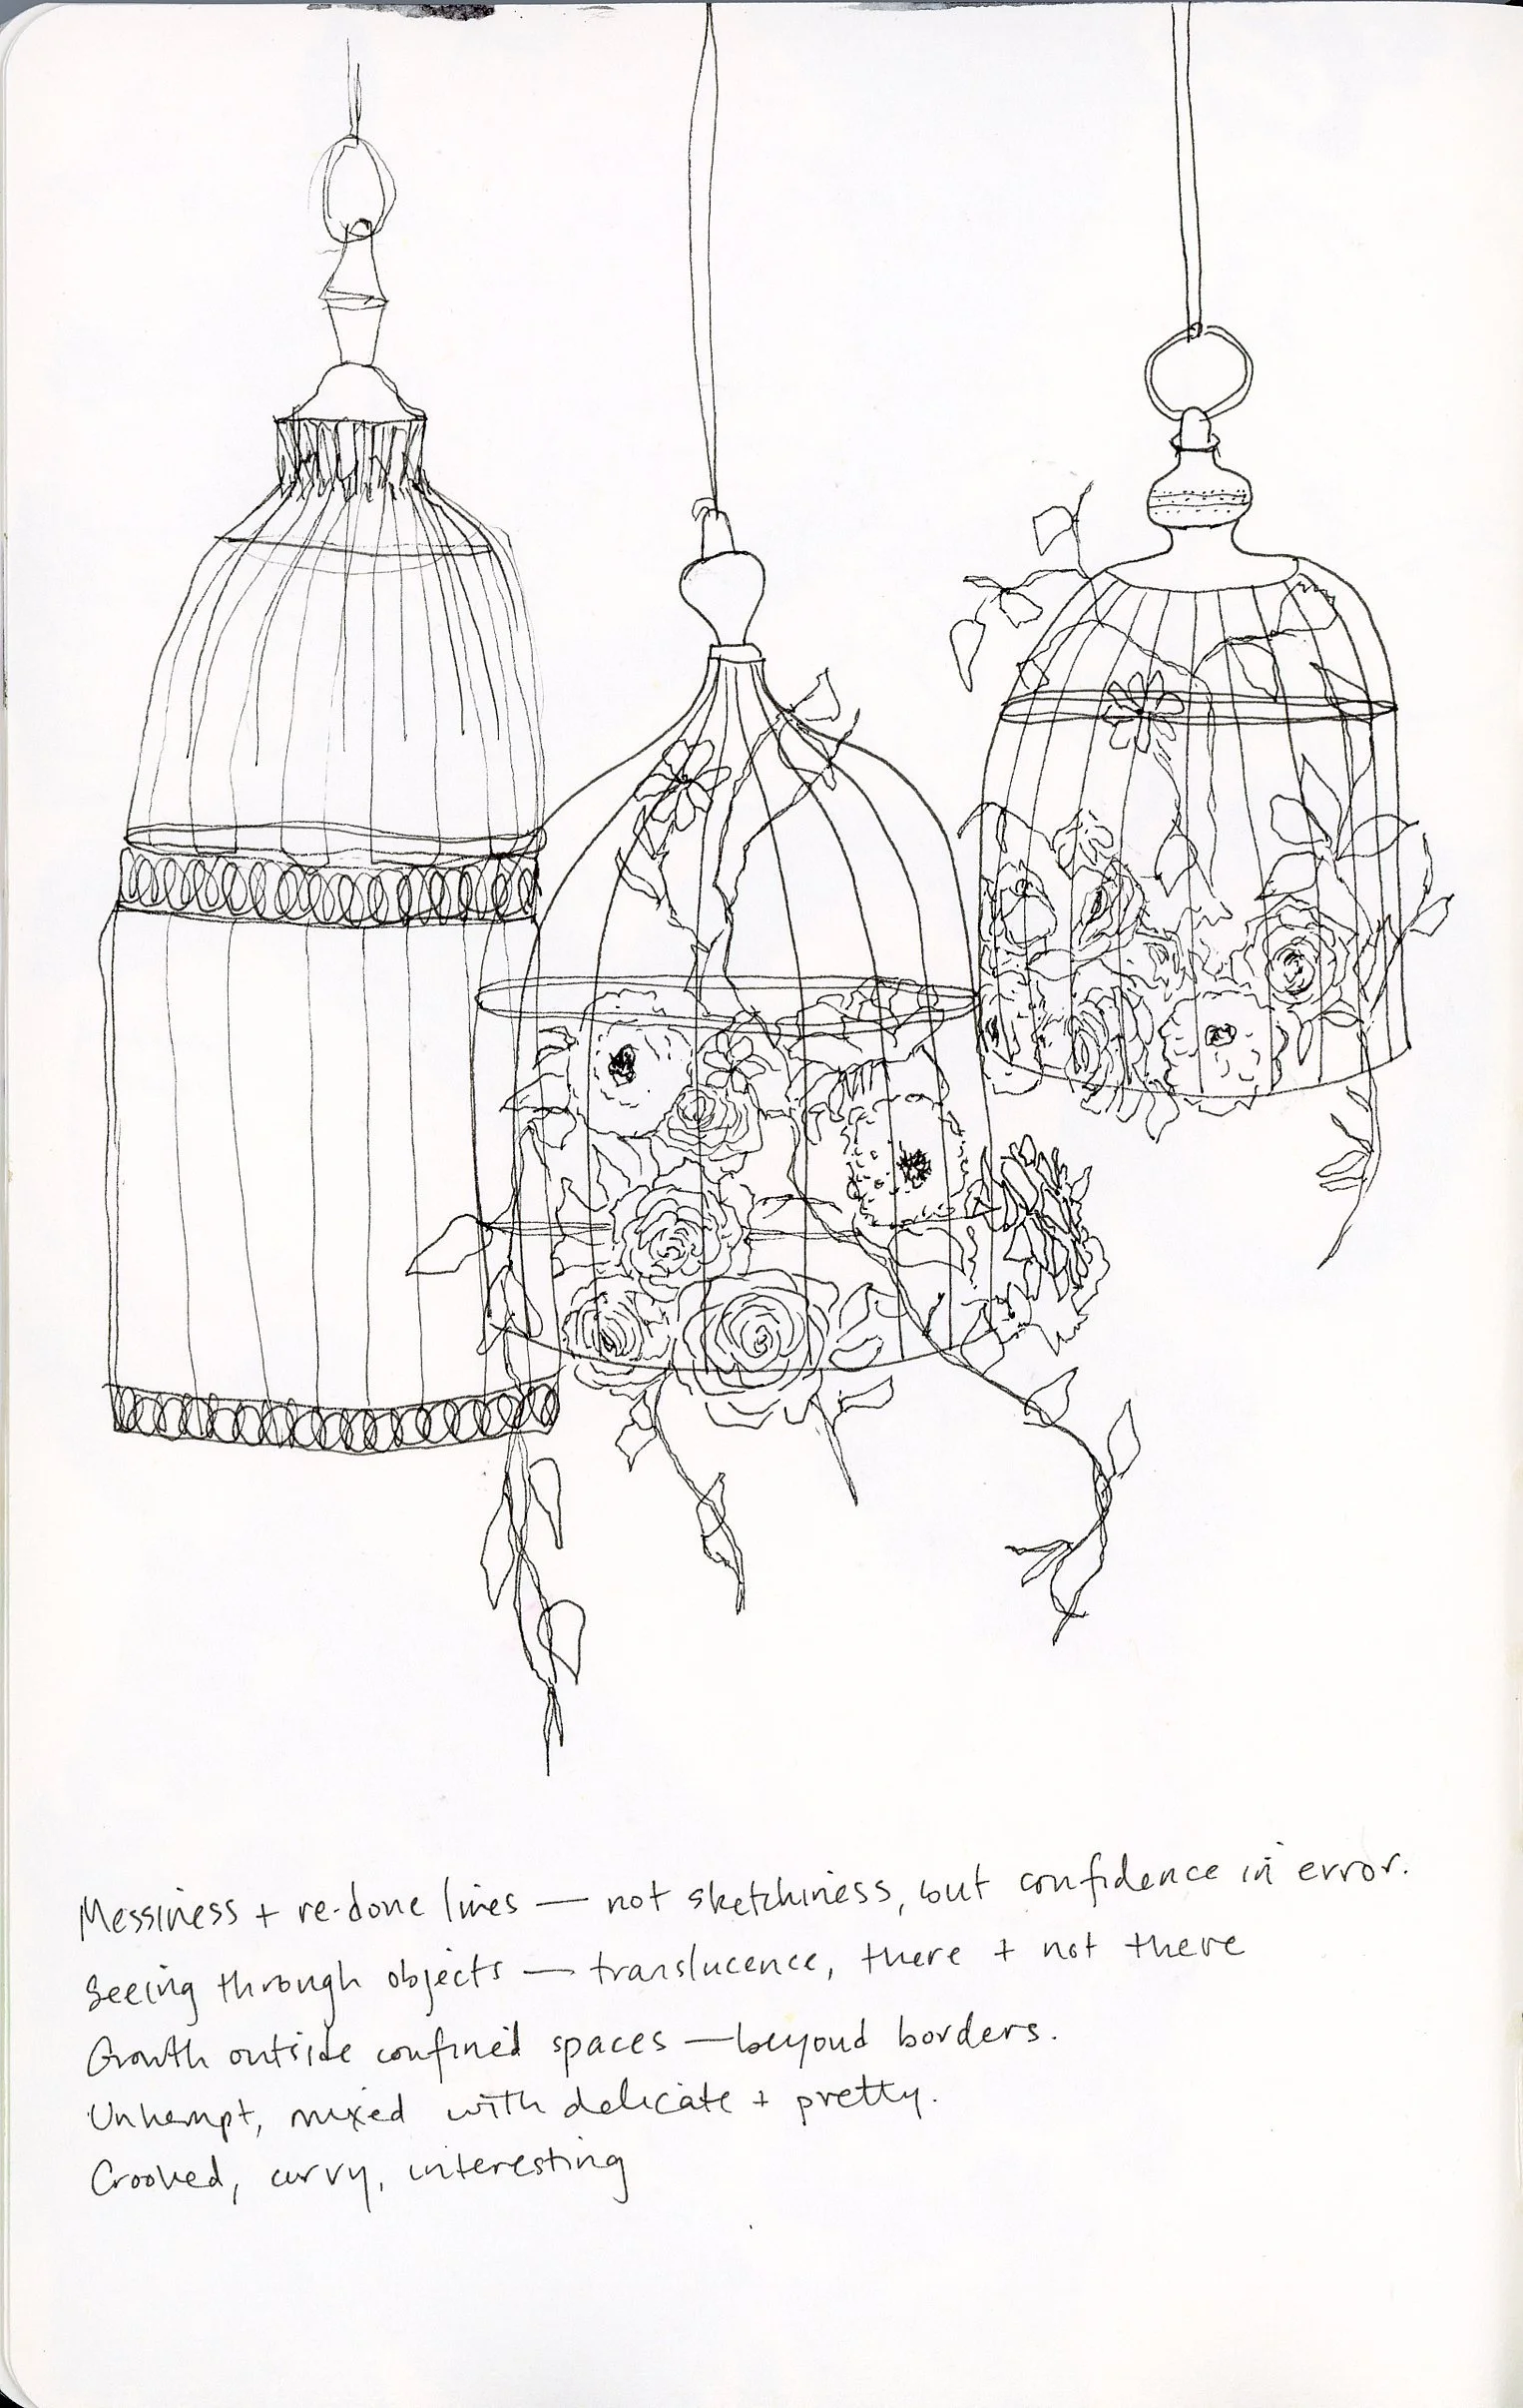 Messiness + re-done lines — not sketchiness, but confidence in error.
Seeing through objects — translucence, there + not there
Growth outside confined spaces — beyond borders.
Unkempt, mixed with delicate + pretty.
Crooked, curvy, interesting